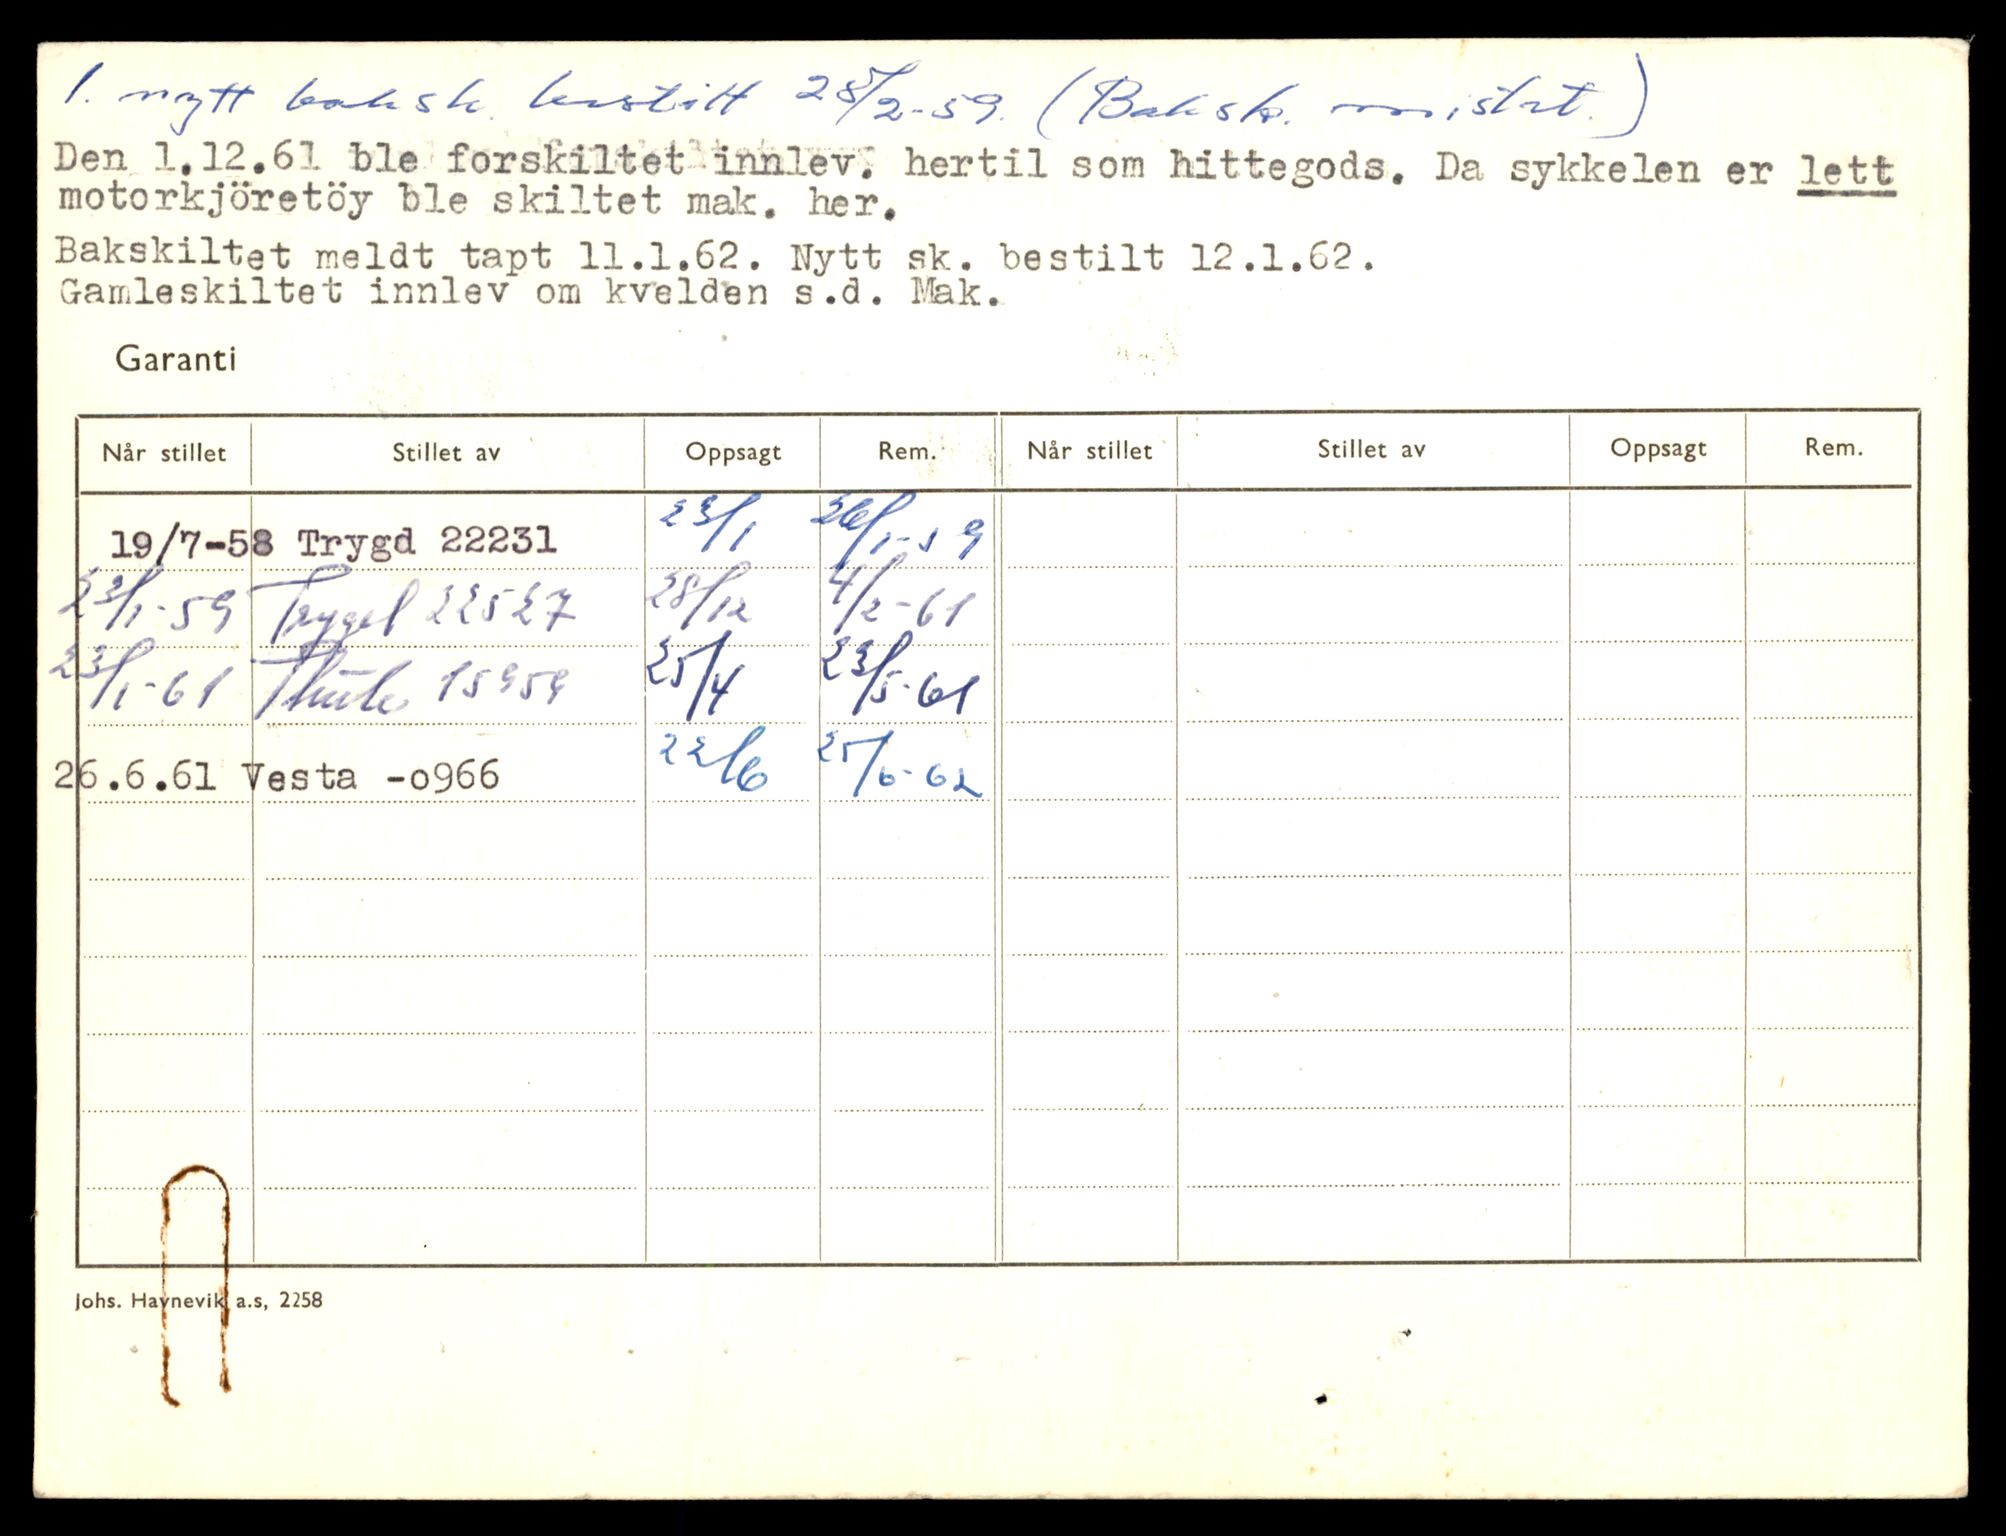 1. nytt baksk. bestilt 28/2-59. (Baksk. mistet.)
Den 1.12.61 ble forskiltet innlev. hertil som hittegods. Da sykkelen er lett
motorkjöretöy ble skiltet mak. her.
Bakskiltet meldt tapt 11.1.62. Nytt sk. bestilt 12.1.62.
Gamleskiltet innlev om kvelden s.d. Mak.
Garanti
Når stillet Stillet av Oppsagt Rem. Når stillet Stillet av Oppsagt Rem.
19/7-58 Trygd 22231 23/1 26/1-59
23/1-59 Trygd 22527 28/12 4/2-61
23/1-61 Thule 15959 25/4 23/5-61
26.6.61 Vesta -o966 22/6 25/6-62
Johs. Havnevik a.s, 2258